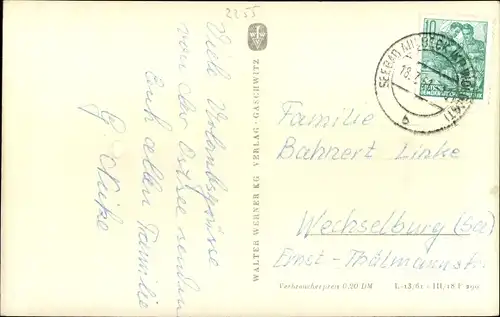 2255
Viele Urlaubsgrüsse
von der Ostsee senden
Euch allen Familie
G. 
WALTER WERNER KG VERLAG · GASCHWITZ
10
SEEBAD
18.7.
Familie
Bahnert Linke
Wechselburg (Sa)
Ernst-Thälmannstr.
Verbraucherpreis 0.20 DM L-13/61 - III/18 F 299